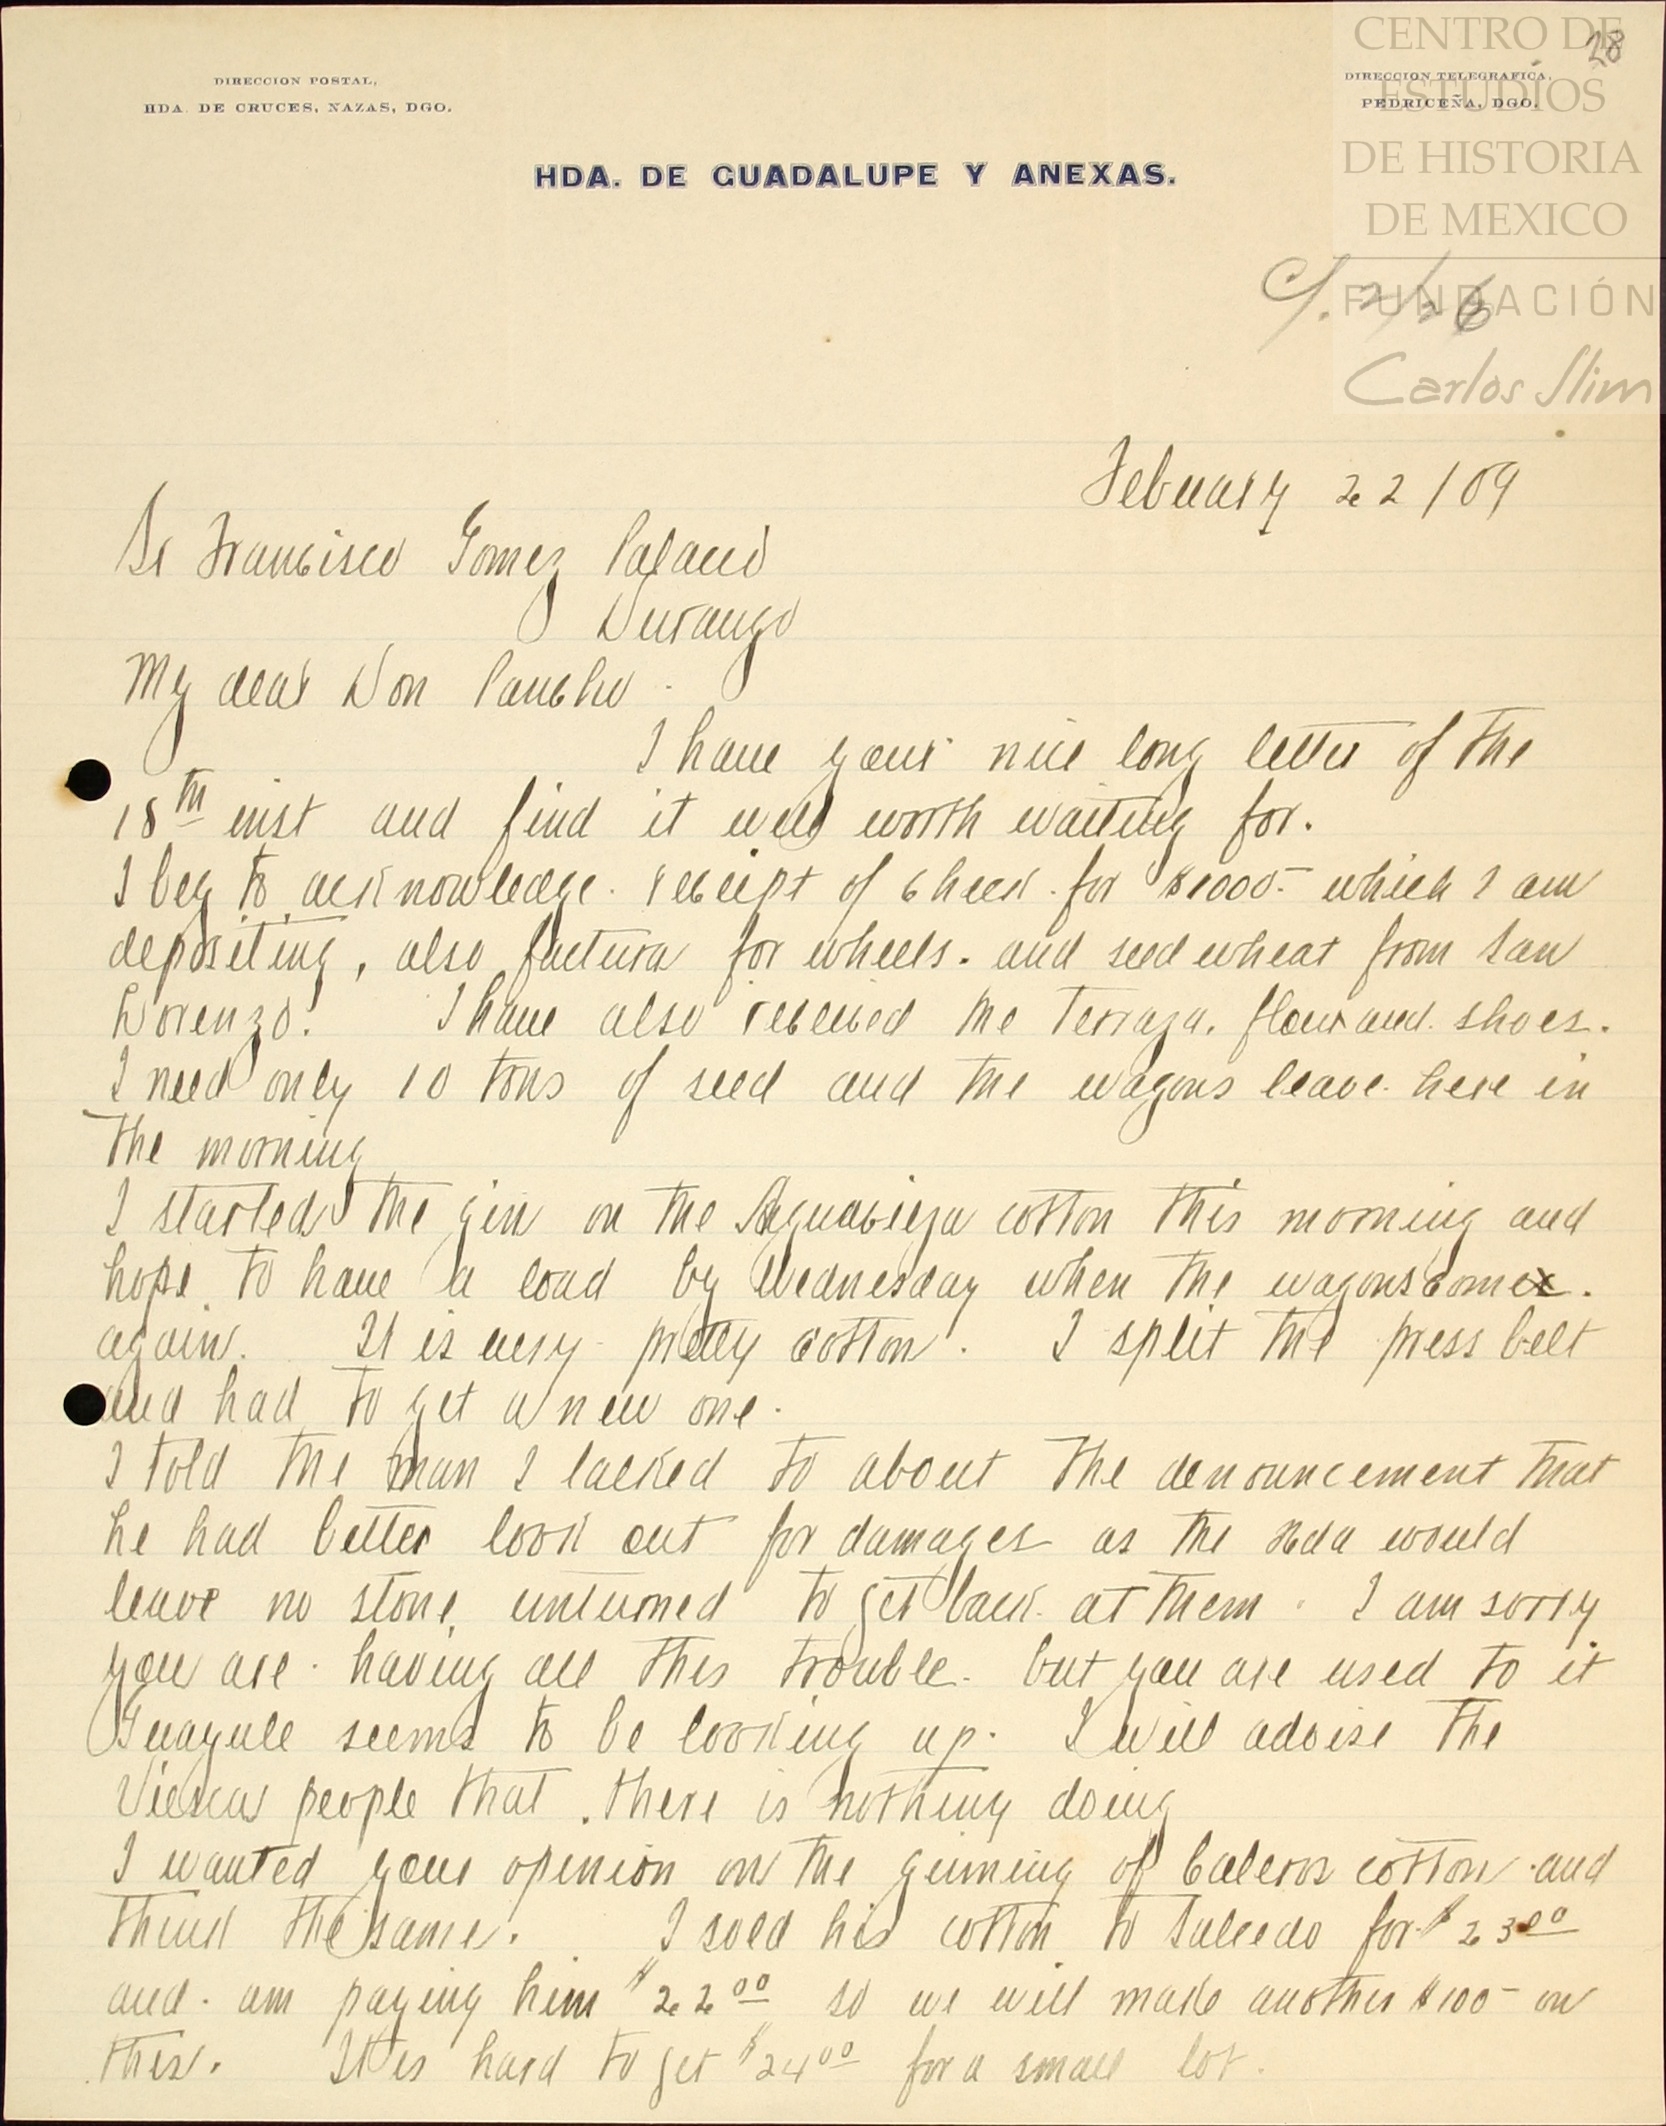 28
DIRECCION POSTAL,
HDA. DE CRUCES, NAZAS, DGO.
DIRECCION TELEGRAFICA,
PEDRICEÑA, DGO.
HDA. DE GUADALUPE Y ANEXAS.
CENTRO DE
ESTUDIOS
DE HISTORIA
DE MEXICO
FUNDACIÓN
Carlos Slim
Febuary 22/09
Sr Francisco Gomez Palacio
Durango
My dear Don Pancho
I have your nice long letter of the
18th inst and find it well worth waiting for.
I beg to acknowledge receipt of check for $1000- which I am
depositing, also factura for wheels and seed wheat from San
Lorenzo. I have also received the Terraza flour and shoes.
I need only 10 tons of seed and the wagons leave here in
the morning
I started the gin on the cotton this morning and
hope to have a load by Wednesday when the wagons come
again. It is very pretty cotton. I split the press belt
and had to get a new one.
I told the man I talked to about the denouncement that
he had better look out for damages as the Hda would
leave no stone unturned to get back at them. I am sorry
you are having all this trouble but you are used to it
Guayule seems to be looking up. I will advise the
Viesca people that there is nothing doing
I wanted your opinion on the ginning of cotton and
think the same. I sold his cotton to Salcedo for $23.00
and am paying him $22.00 so we will make another $100- on
this. It is hard to get $24.00 for a small lot.